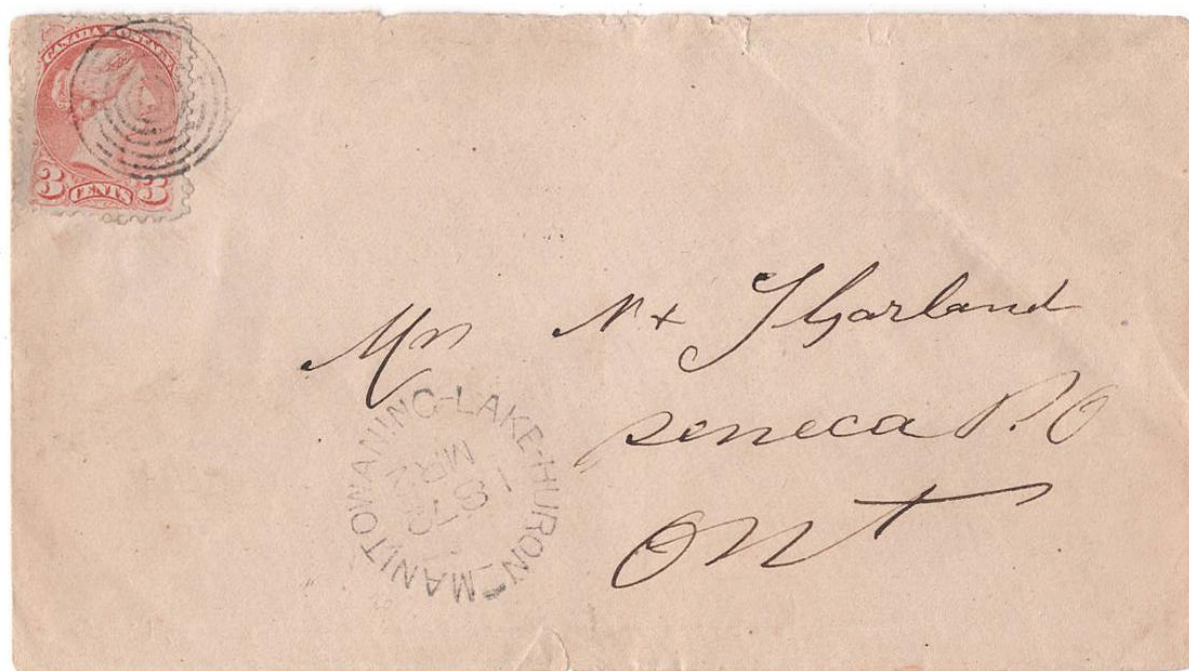 CANADA POSTAGE
3 CENTS 3
Mr N + J Garland
Seneca P.O
Ont
MANITOWANING-LAKE-HURON
MR